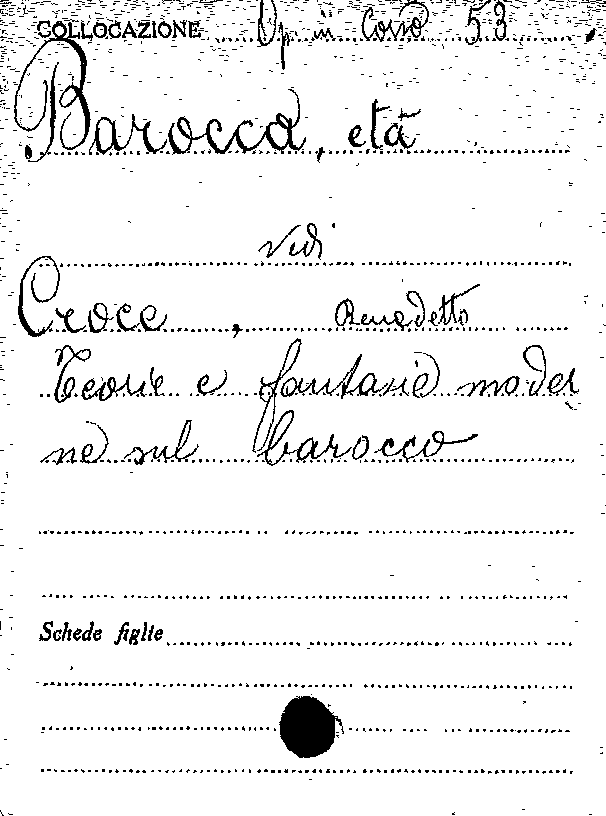 COLLOCAZIONE Op in Corso 53
Barocca, età
vedi
Croce, Benedetto
Teorie e fantasie moder
ne sul barocco
Schede figlie